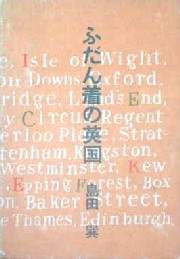 ふだん着の英国
島田 巽
Isle of Wight,
on Downs, Oxford.
bridge, Land's End,
y Circus, Regent
erloo Place, Strat-
tenham, Kingston,
Westminster, Kew
s, Epping Forest, Box
on, Baker Street,
e Thames, Edinburgh,